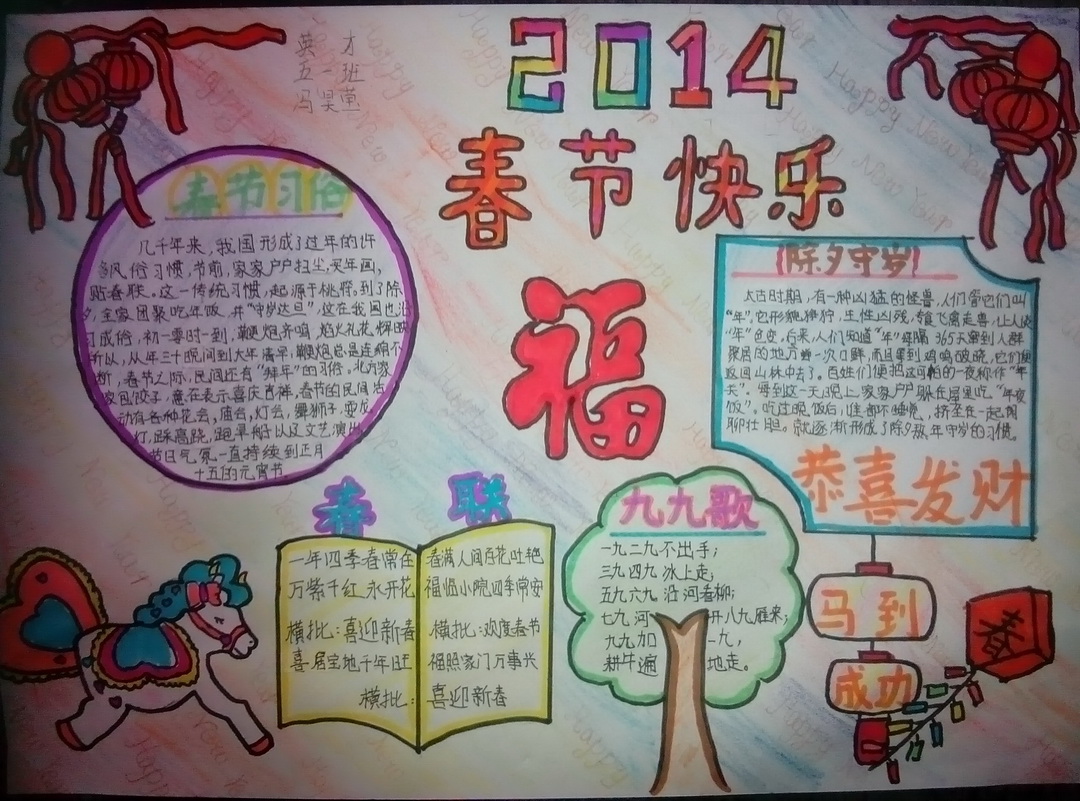 英才
五一班
2014
春节快乐
福
春节习俗
几千年来，我国形成了过年的许
多风俗习惯，节前，家家户户扫尘，买年画，
贴春联。这一传统习惯，起源于桃符。到了除
夕，全家团聚吃年饭，并“守岁达旦”，这在我国也沿
习成俗，初一零时一到，鞭炮齐鸣，焰火礼花，辉映
所以，从年三十晚间到大年清早，鞭炮总是连绵不
断，春节之际，民间还有“拜年”的习俗。北方家
家包饺子，意在表示喜庆吉祥，春节的民间活
动有各种花会，庙会，灯会，舞狮子，耍龙
灯，踩高跷，跑旱船以及文艺演出
节日气氛一直持续到正月
十五的元宵节
除夕守岁
太古时期，有一种凶猛的怪兽，人们管它们叫
“年”。它形貌狰狞，生性凶残，专食飞禽走兽，让人谈
“年”色变。后来，人们知道“年”每隔365天窜到人群
聚居的地方尝一次口鲜，而且等到鸡鸣破晓，它们便
返回山林中去了。百姓们便把这可怕的一夜称作“年
关”。每到这一天晚上，家家户户躲在屋里吃“年夜
饭”。吃过晚饭后，谁都不睡觉，挤坐在一起闲
聊壮胆。就逐渐形成了除夕熬年守岁的习惯。
恭喜发财
春联
一年四季春常在
万紫千红永开花
横批：喜迎新春
喜居宝地千年旺
横批：
春满人间百花吐艳
福临小院四季常安
横批：欢度春节
福照家门万事兴
喜迎新春
九九歌
一九二九不出手；
三九四九冰上走；
五九六九沿河看柳；
七九河开八九雁来；
九九加一九，
耕牛遍地走。
马到
成功
春